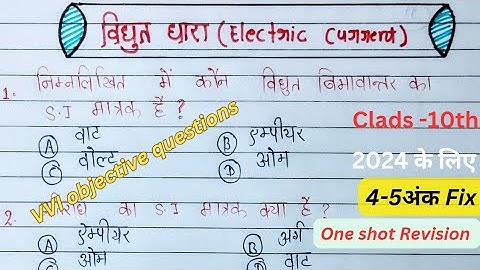 विधुत धारा (Electric Current)
1. निम्नलिखित में कौन विधुत विभावान्तर का
S.I मात्रक है ?
(A) वाट (B) एम्पीयर
(C) वोल्ट (D) ओम
VVI objective questions
Clads -10th
2024 के लिए
4-5अंक Fix
One shot Revision
2. का S.I मात्रक क्या है ?
(A) ऐम्पीयर (B) अर्ग
(C) ओम (D) वाट